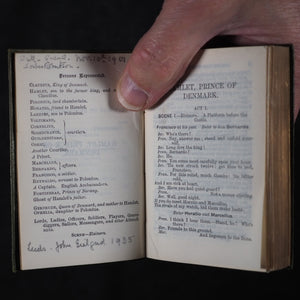 Nov. 10th 1901
Persons Represented.
CLAUDIUS, King of Denmark.
HAMLET, Son to the former king, and
POLONIUS, lord chamberlain.
HORATIO, friend to Hamlet.
LAERTES, son to Polonius.
VOLTIMAND,
CORNELIUS,
ROSENCRANTZ,
GUILDENSTERN,
OSRIC,
Another Courtier,
A Priest.
MARCELLUS,
BERNARDO,
FRANCISCO, a soldier.
REYNALDO, servant to Polonius.
A Captain. English Ambassadors.
FORTINBRAS, Prince of Norway.
Ghost of Hamlet's Father.
GERTRUDE, Queen of Denmark, and mother to Hamlet.
OPHELIA, daughter to Polonius.
Lords, Ladies, Officers, Soldiers, Players, Grave-
diggers, Sailors, Messengers, and other Attendants.
SCENE—Elsinore.
Leeds. John Gielgud 1935
HAMLET, PRINCE OF
DENMARK.
ACT I.
SCENE I.—Elsinore. A Platform before the
Castle.
Francisco at his post. Enter to him Bernardo.
Ber. Who's there?
Fran. Nay, answer me: stand, and unfold
yourself.
Ber. Long live the king!
Fran. Bernardo?
Ber. He.
Fran. You come most carefully upon your hour.
Ber. 'Tis now struck twelve; get thee to bed,
Francisco.
Fran. For this relief, much thanks: 'tis bitter
cold,
And I am sick at heart.
Ber. Have you had quiet guard?
Fran. Not a mouse stirring.
Ber. Well, good night.
If you do meet Horatio and Marcellus,
The rivals of my watch, bid them make haste.
Enter Horatio and Marcellus.
Fran. I think I hear them.—Stand, ho! Who's
there?
Hor. Friends to this ground.
Mar. And liegemen to the Dane.